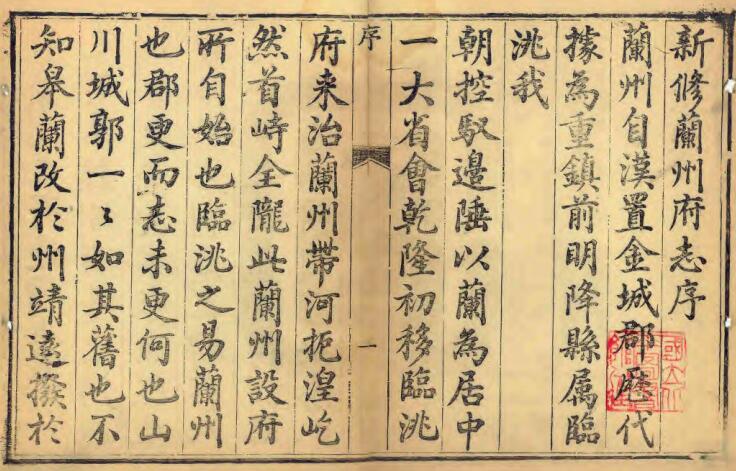 新修蘭州府志序
蘭州自漢置金城郡歷代
據為重鎮前明降縣属臨
洮我
朝控馭邊陲以蘭為居中
一大省會乾隆初移臨洮
序
一
府来治蘭州帶河扼湟屹
然首峙全隴此蘭州設府
所自始也臨洮之易蘭州
也郡更而志未更何也山
川城郭一〻如其舊也不
知皋蘭改於州靖遠撥於